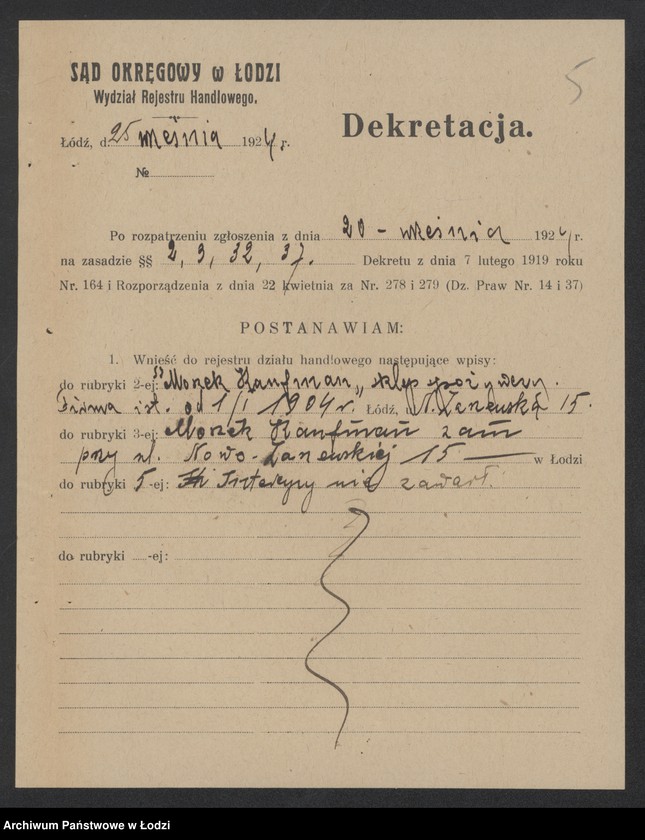 SĄD OKRĘGOWY w ŁODZI
Wydział Rejestru Handlowego.
5
Dekretacja.
Łódź, d. 25 września 1924 r.
№
Po rozpatrzeniu zgłoszenia z dnia 20 - września 1924 r.
na zasadzie §§ 2, 3, 32, 37. Dekretu z dnia 7 lutego 1919 roku
Nr. 164 i Rozporządzenia z dnia 22 kwietnia za Nr. 278 i 279 (Dz. Praw Nr. 14 i 37)
POSTANAWIAM:
1. Wnieść do rejestru działu handlowego następujące wpisy:
do rubryki 2-ej: "Moszek Kaufman" sklep spożywczy.
Firma ist. od 1/I 1904 r. Łódź, N. Zarzewska 15.
do rubryki 3-ej: Moszek Kaufman zam
przy ul. Nowo-Zarzewskiej 15 — w Łodzi
do rubryki 5-ej: Intercyzy nie zawarł.
do rubryki -ej:
Archiwum Państwowe w Łodzi